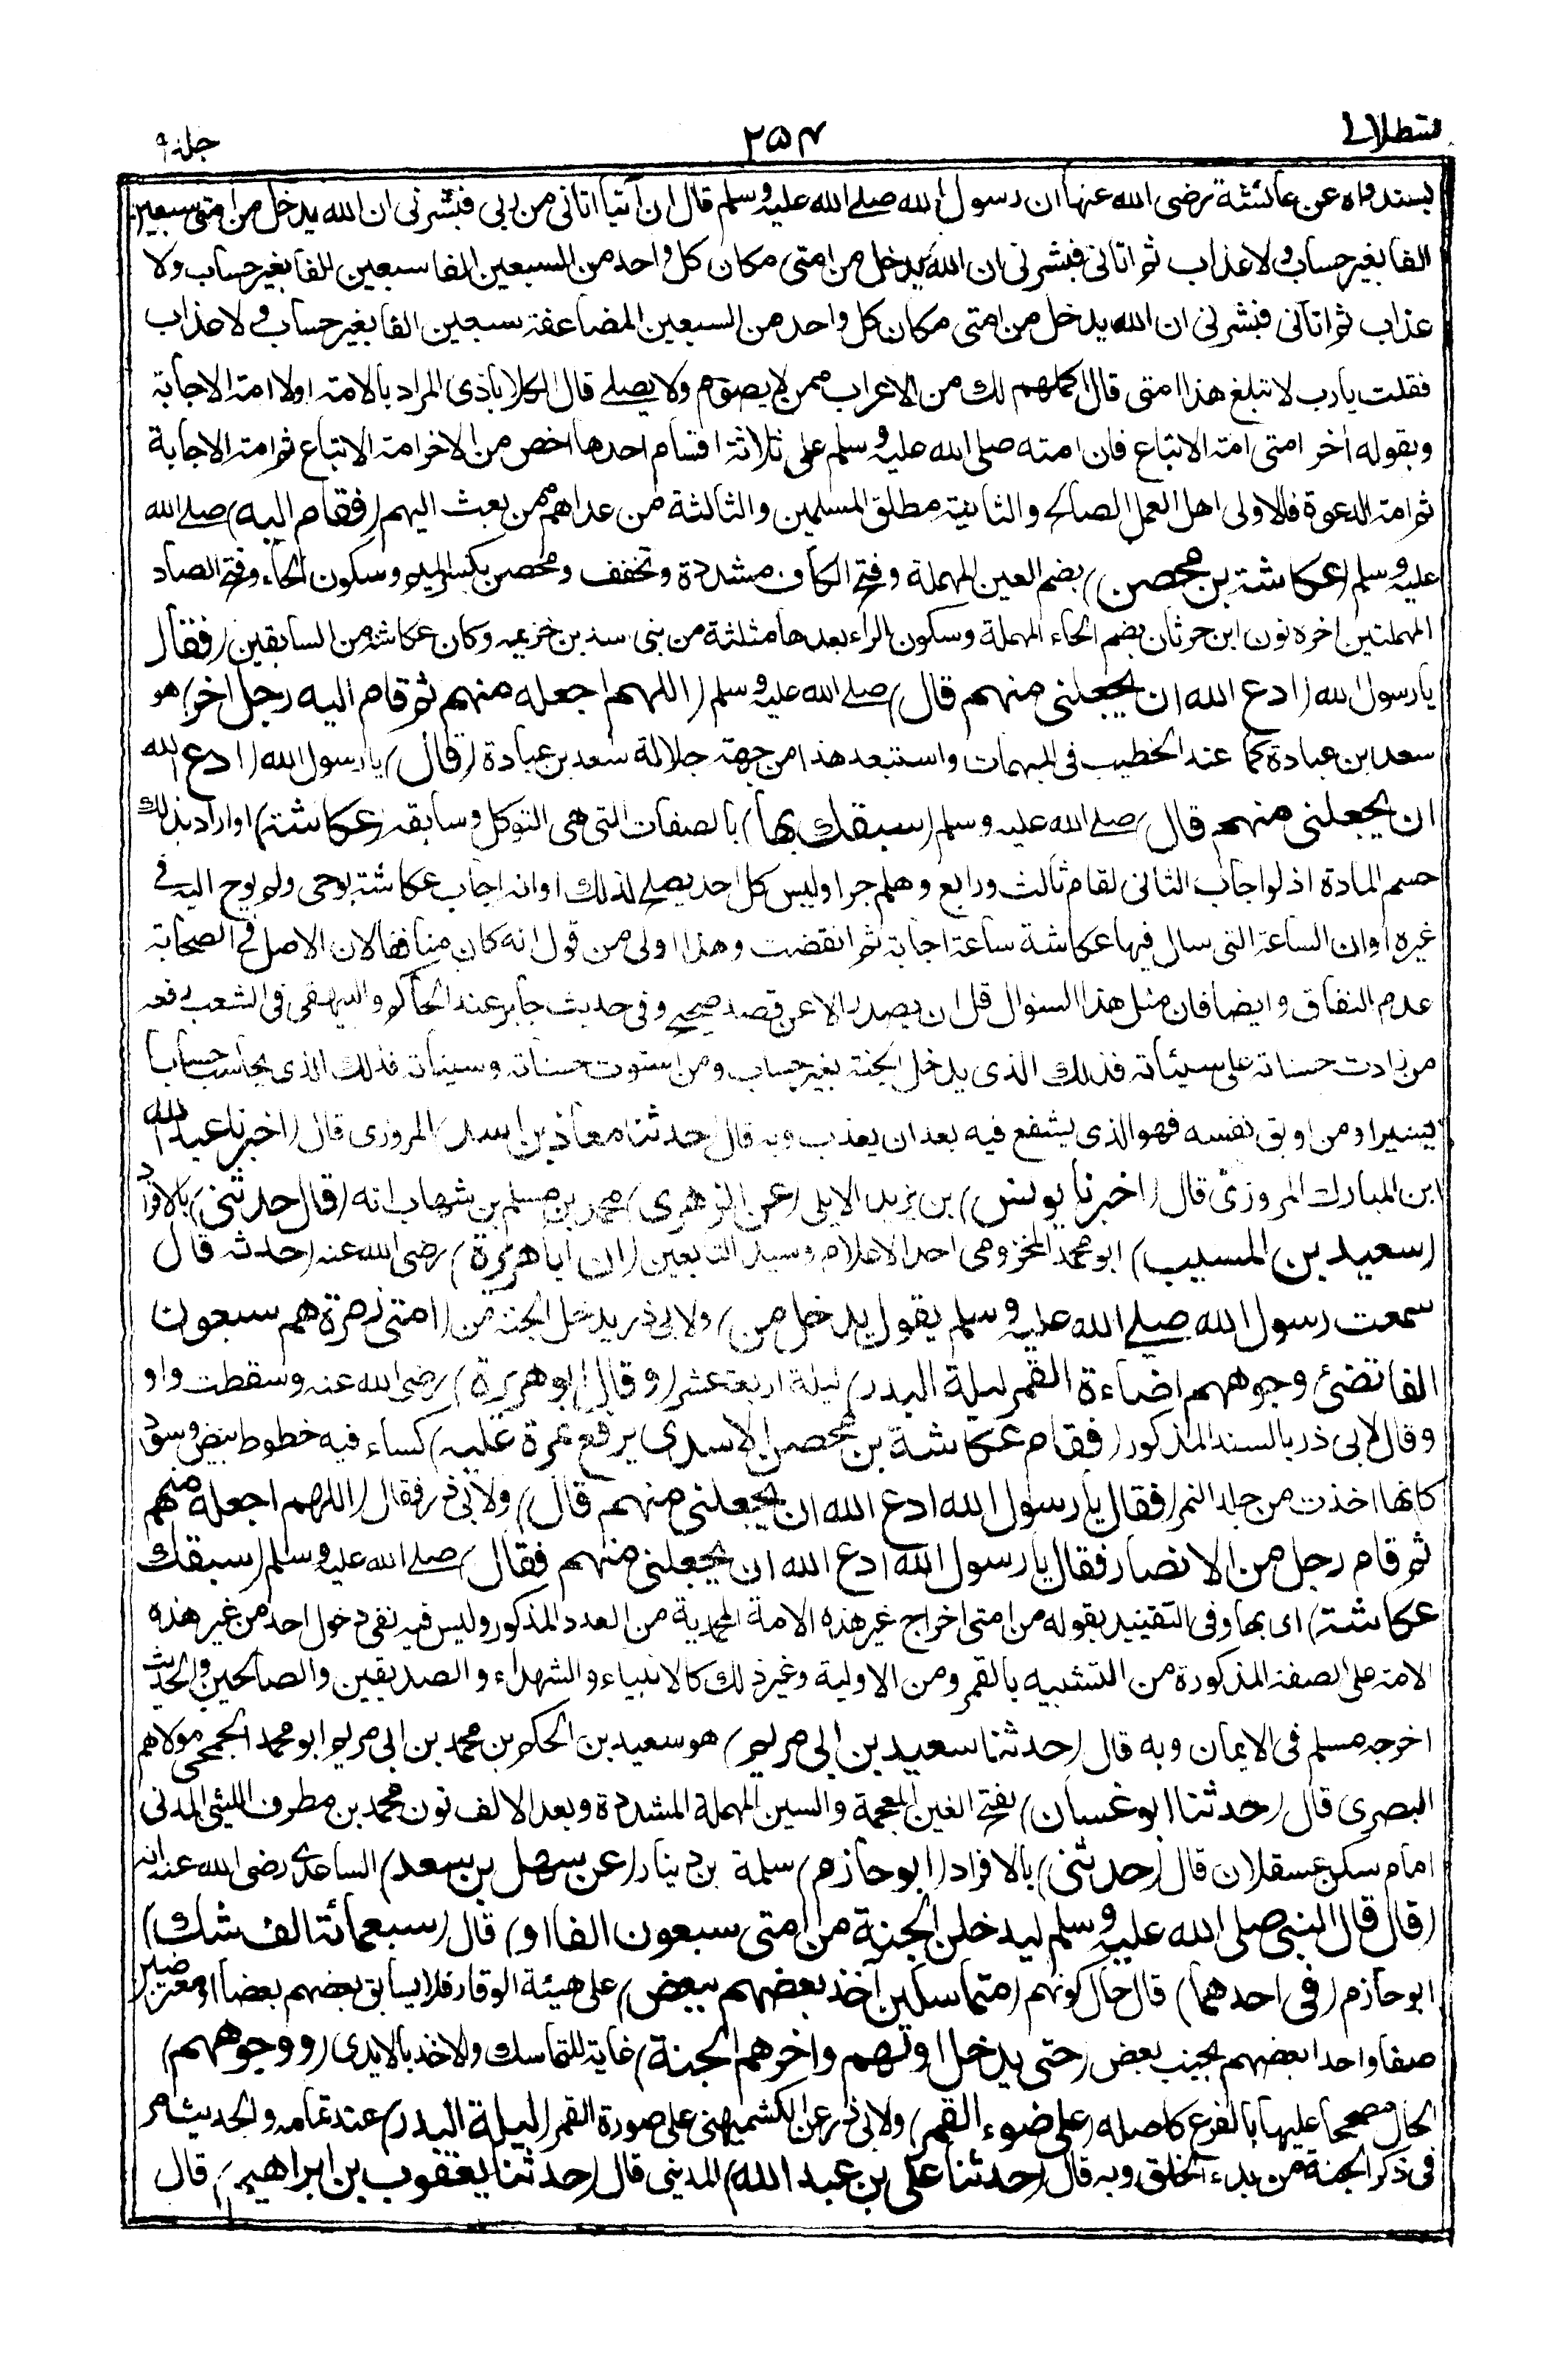 قسطلانی ۲۵۴ جلد ۹
بسند واه عن عائشة رضى الله عنها ان رسول الله صلى الله عليه وسلم قال ان آتيا اتانى من ربى فبشرنى ان الله يدخل من امتى سبعين
الفا بغير حساب ولا عذاب ثم اتانى فبشرنى ان الله يدخل من امتى مكان كل واحد من السبعين الفا سبعين الفا بغير حساب ولا
عذاب ثم اتانى فبشرنى ان الله يدخل من امتى مكان كل واحد من السبعين المضاعفة سبعين الفا بغير حساب ولا عذاب
فقلت يارب لا تبلغ هذا امتى قال اكملهم لك من الاعراب ممن لا يصوم ولا يصلى قال الكلاباذى المراد بالامة اولا امة الاجابة
وبقوله آخر امتى امة الاتباع فان امته صلى الله عليه وسلم على ثلاثة اقسام احدها اخص من الاخر امة الاتباع ثم امة الاجابة
ثم امة الدعوة فالاولى اهل العمل الصالح والثانية مطلق المسلمين والثالثة من عداهم ممن بعث اليهم (فقام اليه) صلى الله
عليه وسلم (عكاشة بن محصن) بضم العين المهملة وفتح الكاف مشددة وتخفف ومحصن بكسر الميم وسكون الحاء وفتح الصاد
المهملتين اخره نون ابن حرثان بضم الحاء المهملة وسكون الراء بعدها مثلثة من بنى اسد بن خزيمه وكان عكاشة من السابقين (فقال
يا رسول الله (ادع الله ان يجعلنى منهم قال) صلى الله عليه وسلم (اللهم اجعله منهم ثم قام اليه رجل اخر) هو
سعد ابن عبادة كما عند الخطيب فى المبهمات واستبعد هذا من جهة جلالة سعد بن عبادة (قال) يا رسول الله (ادع الله
ان يجعلنى منهم قال) صلى الله عليه وسلم (سبقك بها) بالصفات التى هى التوكل وسابقه (عكاشة) او اراد بذلك
حسم المادة اذ لو اجاب الثانى لقام ثالث ورابع وهلم جرا وليس كل احد يصلح لذلك او انه اجاب عكاشة بوحى ولم يوح اليه فى
غيره او ان الساعة التى سال فيها عكاشة ساعة اجابة ثم انقضت وهذا اولى من قول انه كان منافقا لان الاصل فى الصحابة
عدم النفاق وايضا فان مثل هذا السؤال قل ان يصدر الا عن قصد صحيح وفى حديث جابر عند الحاكم والبيهقى فى الشعب رفعه
من زادت حسناته على سيئاته فذلك الذى يدخل الجنة بغير حساب ومن استوت حسناته وسيئاته فذلك الذى يحاسب حسابا
يسيرا ومن اوبق نفسه فهو الذى يشفع فيه بعد ان يعذب وبه قال (حدثنا معاذ بن اسد) المروزى قال (اخبرنا عبد الله
ابن المبارك المروزى قال (اخبرنا يونس) بن يزيد الايلى (عن الزهرى) محمد بن مسلم بن شهاب انه (قال حدثنى) بالافراد
(سعيد بن المسيب) ابو محمد المخزومى احد الاعلام وسيد التابعين (ان ابا هريرة) رضى الله عنه (حدثه قال
سمعت رسول الله صلى الله عليه وسلم يقول يدخل من) ولابى ذر يدخل الجنة من (امتى زمرة هم سبعون
الفا تضئ وجوههم اضاءة القمر ليلة البدر) ليلة اربعة عشر (وقال ابو هريرة) رضى الله عنه وسقطت واو
وقال لابى ذر بالسند المذكور (فقام عكاشة بن محصن الاسدى يرفع نمرة عليه) كساء فيه خطوط بيض وسود
كانها اخذت من جلد النمر (فقال يا رسول الله ادع الله ان يجعلنى منهم قال) ولابى ذر فقال (اللهم اجعله منهم
ثم قام رجل من الانصار فقال يا رسول الله ادع الله ان يجعلنى منهم فقال) صلى الله عليه وسلم (سبقك
عكاشة) اى بها وفى التقييد بقوله من امتى اخراج غير هذه الامة المحمدية من العدد المذكور وليس فيه نفى دخول احد من غير هذه
الامة على الصفة المذكورة من التشبيه بالقمر ومن الاولية وغير ذلك كالانبياء والشهداء والصديقين والصالحين والحديث
اخرجه مسلم فى الايمان وبه قال (حدثنا سعيد بن ابى مريم) هو سعيد بن الحكم بن محمد بن ابى مريم ابو محمد الجمحى مولاهم
البصرى قال (حدثنا ابو غسان) بفتح الغين المعجمة والسين المهملة المشددة وبعد الالف نون محمد بن مطرف الليثى المدنى
امام سكن عسقلان قال (حدثنى) بالافراد (ابو حازم) سلمة بن دينار (عن سهل بن سعد) الساعدى رضى الله عنه انه
(قال قال النبى صلى الله عليه وسلم ليدخلن الجنة من امتى سبعون الفا او) قال (سبعمائة الف شك)
ابو حازم (فى احدهما) قال حال كونهم (متماسكين آخذ بعضهم ببعض) على هيئة الوقار فلا يسابق بعضهم بعضا او معترضين
صفا واحدا بعضهم بجنب بعض (حتى يدخل اولهم واخرهم الجنة) غاية للتماسك والاخذ بالايدى (ووجوههم)
الحال مصححا عليها بالفرع كاصله (على ضوء القمر) ولابى ذر عن الكشميهنى على صورة القمر (ليلة البدر) عند تمامه والحديث مر
فى ذكر الجنة من بدء الخلق وبه قال (حدثنا على بن عبد الله) المدينى قال (حدثنا يعقوب بن ابراهيم) قال